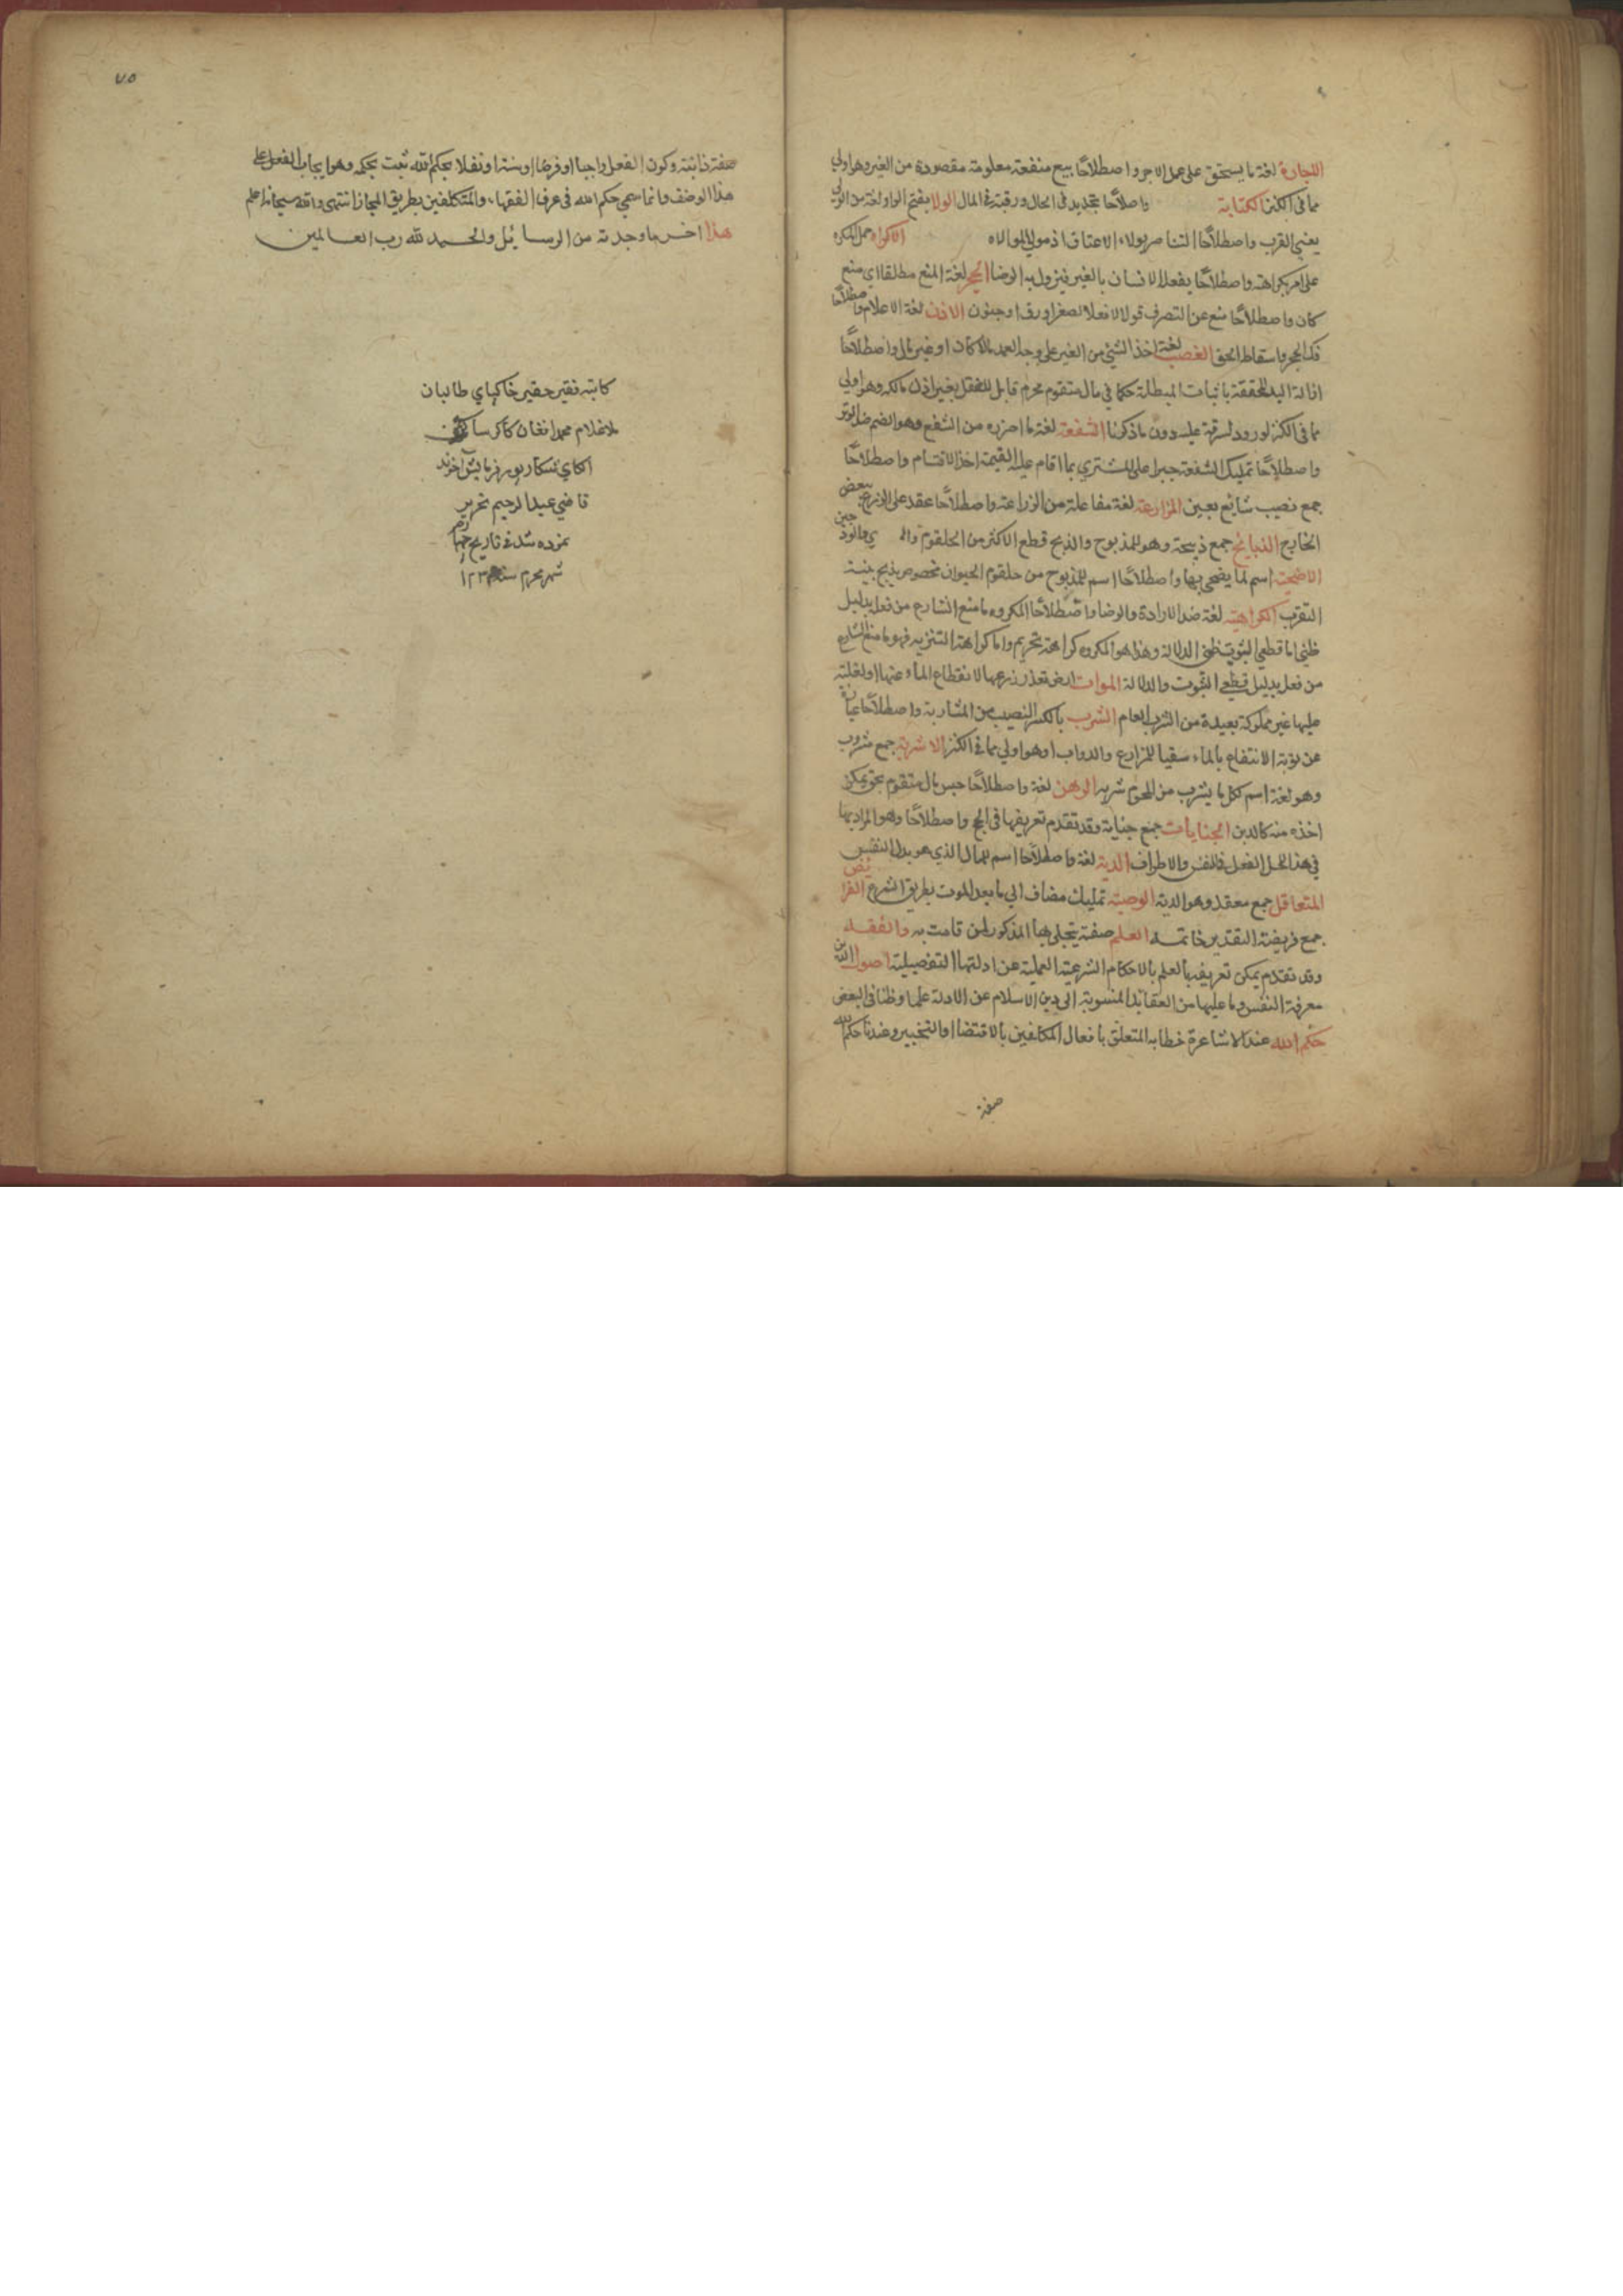 الاجارة لغة ما يستحق على عمل الاجر واصطلاحًا بيع منفعة معلومة مقصودة من الغير وهو اولى
مما فى الكنز الكتابة واصلاحًا تحديد فى الحال ورقبة فى المال الولا بفتح الواو لغة من الولي
يعنى القرب واصطلاحًا التناصر بولاء الاعتاق اذ مولى الموالاه الاكراه حمل المكره
على امر بكراهته واصطلاحًا يفعل الانسان بالغير فيزول به الرضا الحجر لغة المنع مطلقا اي منع
كان واصطلاحًا منع عن التصرف قولا لا فعلا لصغر او رق او جنون الاذن لغة الاعلام واصطلاحًا
فك الحجر واسقاط الحق الغصب لغة اخذ الشئ من الغير على وجه العمد مالا كان او غير مال واصطلاحًا
ازالة اليد المحققة باثبات المبطلة حكما في مال متقوم محرم قابل للنقل بغير اذن مالكه وهو اولى
مما فى الكنز لورود السرقة عليه دون ما ذكرنا الشفعة لغة ماخوذه من الشفع وهو الضم ضد الوتر
واصطلاحًا تمليك الشفعة جبرا على المشتري بما اقام عليه القيمة اخذ الاقتسام واصطلاحًا
جمع نصيب شايع بعين المزارعة لغة مفاعلة من الزراعة واصطلاحًا عقد على الزرع ببعض
الخارج الذبايح جمع ذبيحة وهو للمذبوح والذبح قطع الاكثر من الحلقوم
الاضحية اسم لما يضحى بها واصطلاحًا اسم للمذبوح من حلقوم الحيوان مخصوص يذبح بنية
التقرب الكراهية لغة ضد الارادة والرضا واصطلاحًا المكروه ما منع الشارع من فعله بدليل
ظني اما قطعي الثبوت ظني الدلالة وهذا هو المكروه كراهة تحريم واما كراهة التنزيه فهو ما منع الشارع
من فعل بدليل قطعي الثبوت والدلالة الموات ارض تعذر زرعها لانقطاع الماء عنها او لغلبته
عليها غير مملوكة بعيدة من العام الشرب بالكسر النصيب من المشاربة واصطلاحًا عبارة
عن نوبة الانتفاع بالماء سقيا للمزارع والدواب وهو اولى مما فى الكنز الاشربة جمع مشروب
وهو لغة اسم لكل ما يشرب من المحرم شربه الرهن لغة واصطلاحًا حبس مال متقوم بحق يمكن
اخذه منه كالدين الجنايات جمع جناية وقد تقدم تعريفها فى الحج واصطلاحًا وهو المراد بها
في هذا المحل الفعل فى النفس والاطراف الدية لغة واصطلاحًا اسم للمال الذي هو بدل النفس
المتعاقل جمع معقد وهو الدية الوصية تمليك مضاف الى ما بعد الموت بطريق الشرع الفرائض
جمع فريضة التقدير خاتمه العلم صفة يتجلى بها المذكور لمن قامت به والفقه
وقد تقدم يمكن تعريفه بالعلم بالاحكام الشرعية العملية عن ادلتها التفصيلية اصول الدين
معرفة النفس وما عليها من العقائد المنسوبة الى دين الاسلام عن الادلة علما وظنا فى البعض
حكم الله عند الاشاعرة خطابه المتعلق بافعال المكلفين بالاقتضا او التخيير وعندنا حكم الله
صفة
٧٥
صفة ذاتية وكون الفعل واجبا او فرضا او سنة او نفلا بحكم الله ثبت بحكمه وهو ايجاب الفعل على
هذا الوصف وانما سمى حكم الله فى عرف الفقهاء والمتكلفين بطريق المجاز انتهى والله سبحانه اعلم
هذا اخر ما وجدته من الرسائل والحمد لله رب العالمين
كاتبه فقير حقير خاكپاي طالبان
ملا غلام محمد افغان كاكر ساكن
اكاي شكارپور فرمايش آخوند
قاضي عبد الرحيم تحرير
نموده شد فى تاريخ چهارم
شهر محرم سنه